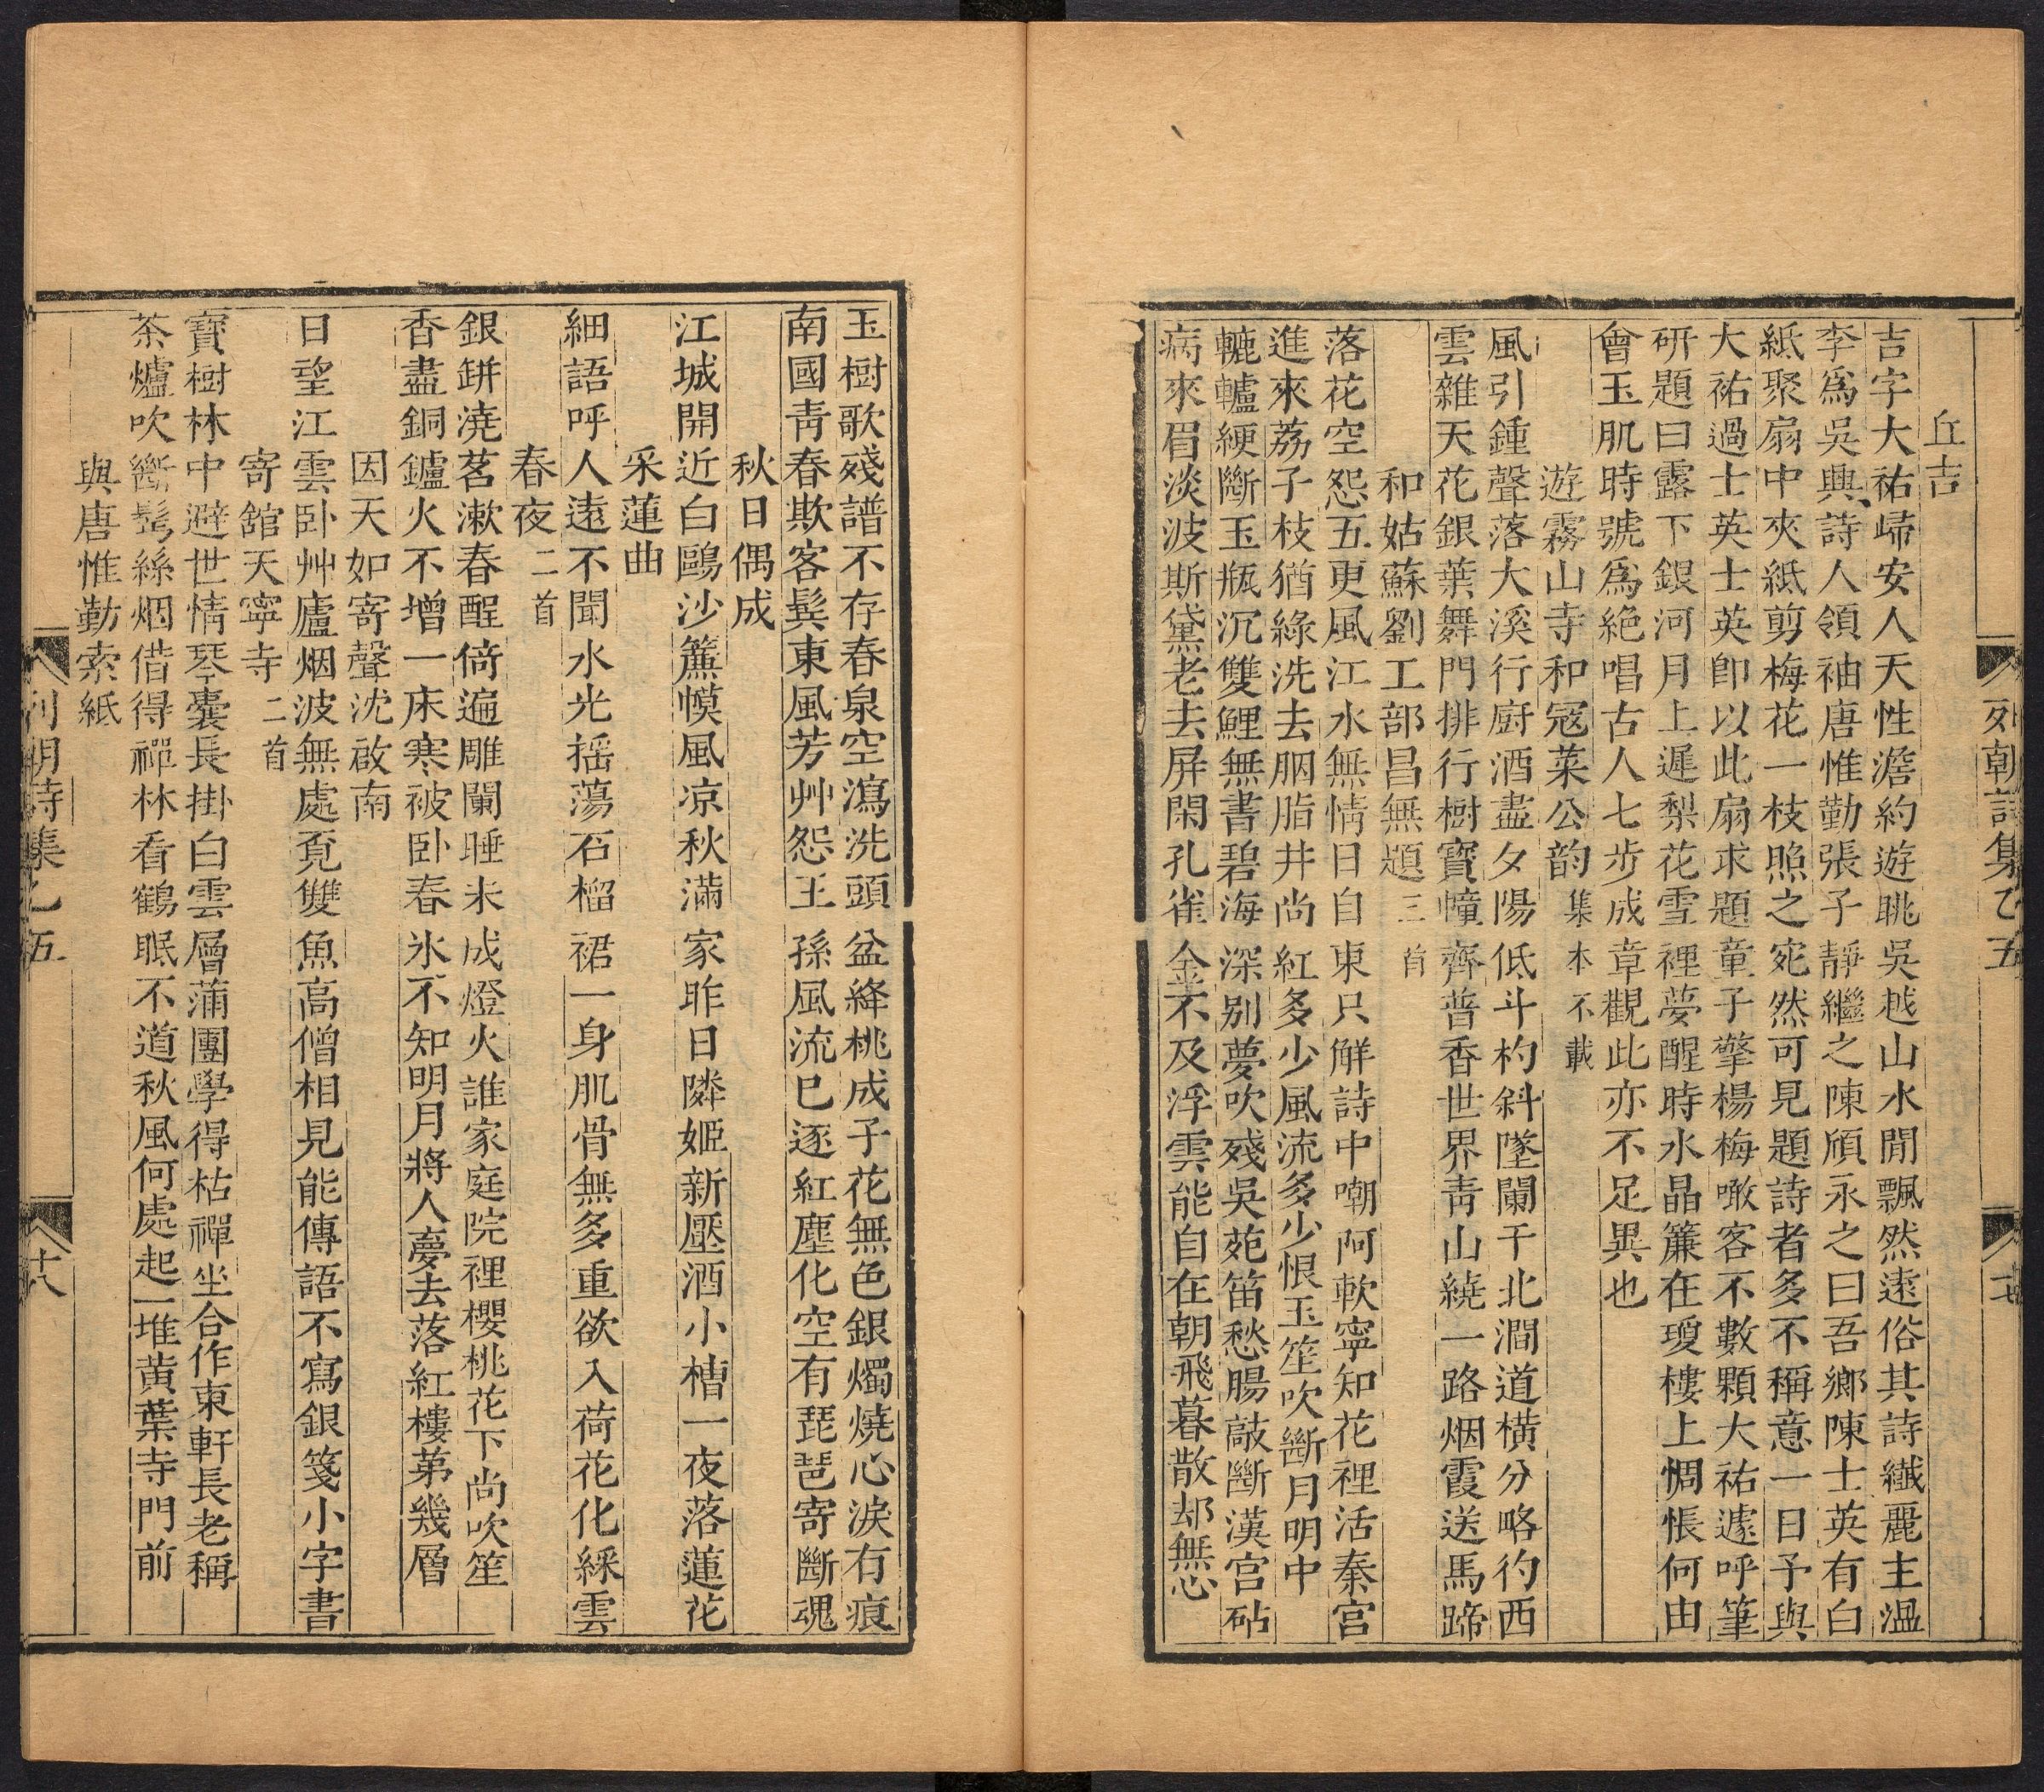 列朝詩集乙五
丘吉
吉字大祐歸安人天性澹約遊眺吳越山水閒飄然遠俗其詩纖麗主溫
李爲吳興詩人領袖唐惟勤張子靜繼之陳頎永之曰吾鄉陳士英有白
紙聚扇中夾紙剪梅花一枝照之宛然可見題詩者多不稱意一日予與
大祐過士英士英卽以此扇求題童子擎楊梅噉客不數顆大祐遽呼筆
硏題曰露下銀河月上遲梨花雪裡夢醒時水晶簾在瓊樓上惆悵何由
會玉肌時號爲絶唱古人七步成章觀此亦不足異也
遊霧山寺和冦萊公韵集本不載
風引鍾聲落大溪行廚酒盡夕陽低斗杓斜墜闌干北澗道橫分略彴西
雲雜天花銀葉舞門排行樹寶幢齊普香世界靑山繞一路烟霞送馬蹄
和姑蘇劉工部昌無題三首
落花空怨五更風江水無情日自東只解詩中嘲阿軟寧知花裡活秦宮
進來荔子枝猶綠洗去胭脂井尚紅多少風流多少恨玉笙吹斷月明中
轆轤綆斷玉瓶沉雙鯉無書碧海深別夢吹殘吳苑笛愁腸敲斷漢宮砧
病來眉淡波斯黛老去屏閑孔雀金不及浮雲能自在朝飛暮散却無心
玉樹歌殘譜不存春泉空瀉洗頭盆絳桃成子花無色銀燭燒心淚有痕
南國靑春欺客鬂東風芳艸怨王孫風流已逐紅塵化空有琵琶寄斷魂
秋日偶成
江城開近白鷗沙簾幙風凉秋滿家昨日隣姬新壓酒小槽一夜落蓮花
采蓮曲
細語呼人遠不聞水光揺蕩石榴裙一身肌骨無多重欲入荷花化綵雲
春夜二首
銀缾澆茗漱春酲倚遍雕闌睡未成燈火誰家庭院裡櫻桃花下尚吹笙
香盡銅鑪火不增一床寒被卧春氷不知明月將人夢去落紅樓第幾層
因天如寄聲沈啟南
日望江雲卧艸廬烟波無處覔雙魚高僧相見能傳語不寫銀箋小字書
寄舘天寧寺二首
寶樹林中避世情琴囊長掛白雲層蒲團學得枯禪坐合作東軒長老稱
茶爐吹斷鬂絲烟借得禪林看鶴眠不道秋風何處起一堆黄葉寺門前
與唐惟勤索紙
列朝詩集乙五
十八